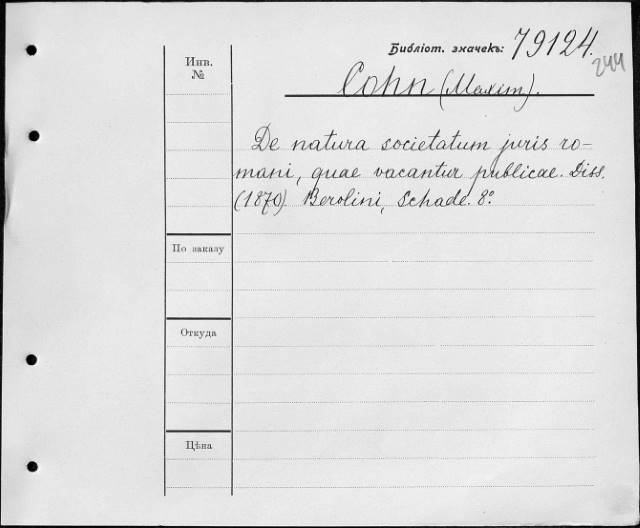 Библіот. значекъ: 79124.
244
Инв.
№
Cohn (Maxim).
De natura societatum juris ro-
mani, quae vacantur publicae. Diss.
(1870). Berolini, Schade. 8°.
По заказу
Откуда
Цѣна